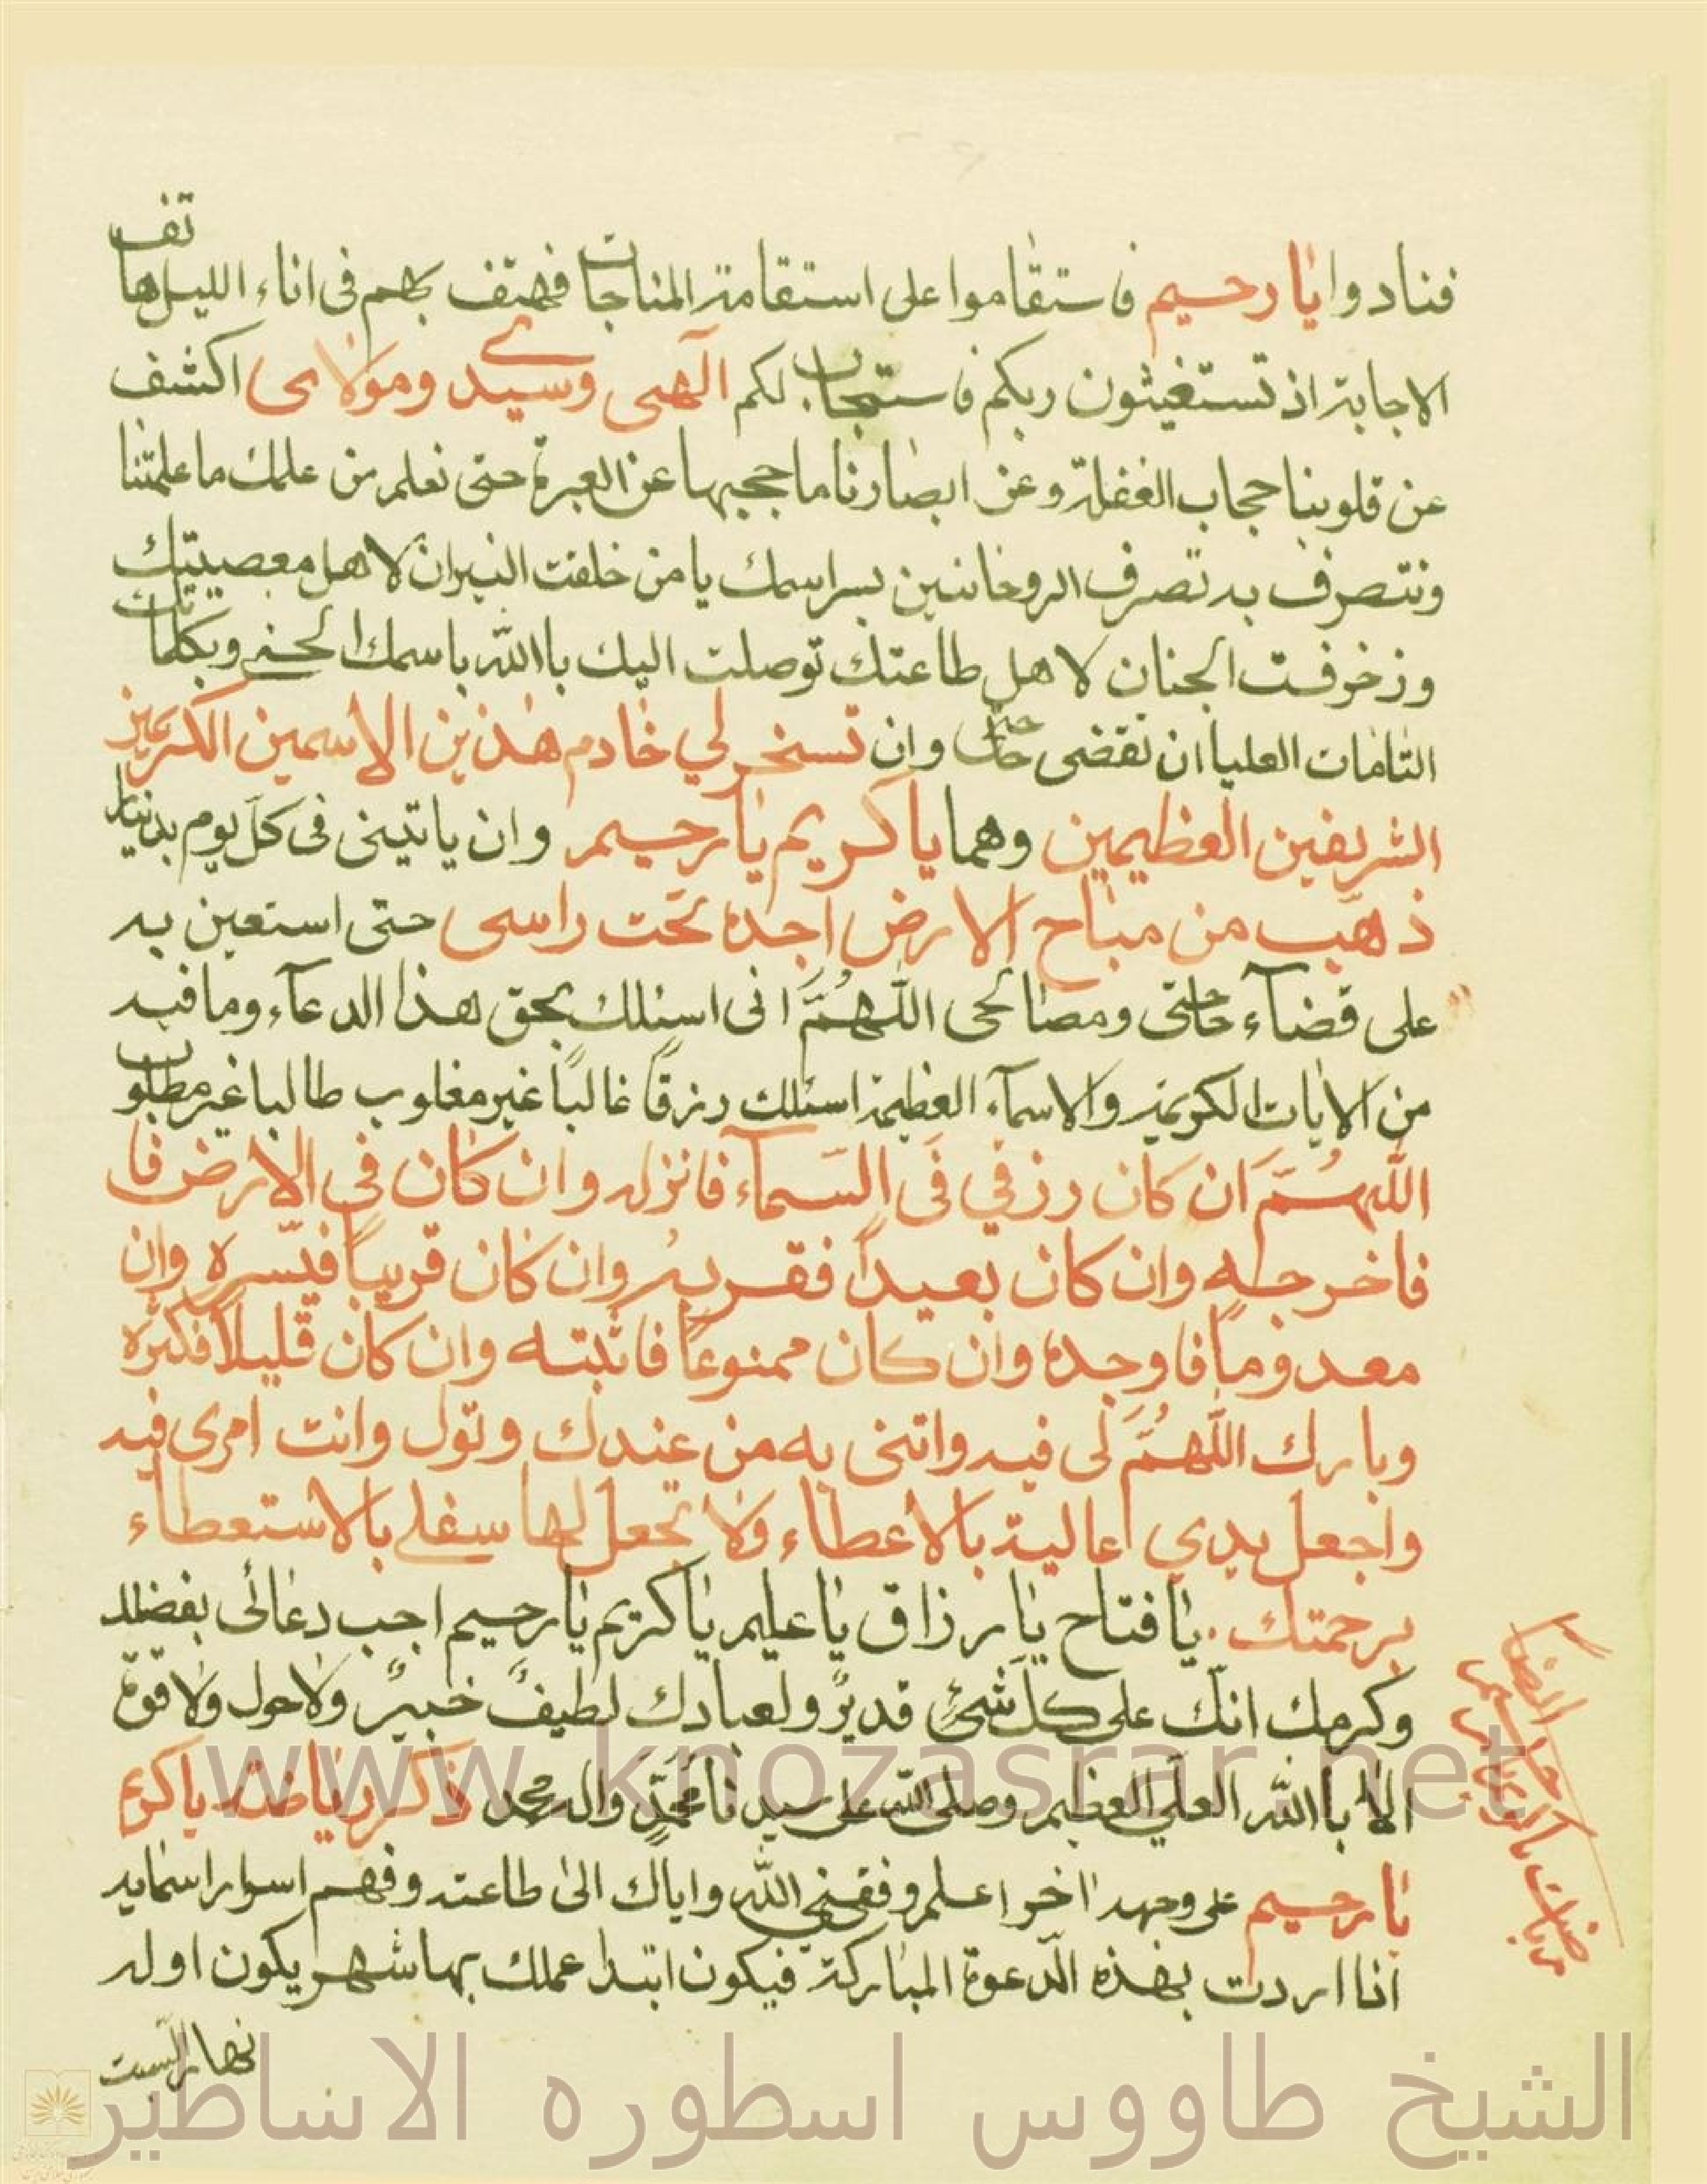 فنادوا يا رحيم فاستقاموا على استقامة المناجات فهتف بهم فى اناء الليل هاتف
الاجابة اذ تستغيثون ربكم فاستجاب لكم الهى وسيدى ومولاى اكشف
عن قلوبنا حجاب الغفلة وعن ابصارنا ما حجبها عن العبرة حتى نعلم من علمك ما علمتنا
ونتصرف به تصرف الروحانين بسر اسمك يا من خلقت النيران لاهل معصيتك
وزخرفت الجنان لاهل طاعتك توصلت اليك باالله باسمك الحسنى وبكلماتك
التامات العليا ان تقضى حاجتى وان تسخر لي خادم هذين الاسمين الكريمين
الشريفين العظيمين وهما يا كريم يا رحيم وان ياتينى فى كل يوم بدينار
ذهب من مباح الارض اجده تحت راسى حتى استعين به
على قضآء حاجتى ومصالحى اللهُمَّ انى اسئلك بحق هذا الدعآء وما فيه
من الايات الكريمة والاسمآء العظيمة اسئلك رزقاً غالباً غير مغلوب طالبا غير مطلوب
اللهُمَّ ان كان رزقي فى السمآء فانزله وان كان في الارض فا
فاخرجه وان كان بعيداً فقربه وان كان قريباً فيسره وان
معدوماً فاوجده وان كان ممنوعاً فاثبته وان كان قليلاً فكثره
وبارك اللهُمَّ لى فيه واتنى به من عندك وتول وانت امرى فيه
واجعل يدي عالية بالاعطاء ولا تجعلها سفلى بالاستعطاء
برحمتك . يا فتاح يا رزاق يا عليم يا كريم يا رحيم اجب دعائى بفضلك
وكرمك انك على كل شئ قديرٌ ولعبادك لطيفٌ خبيرٌ ولا حول ولا قوة
الا باالله العلي العظيم وصلى الله على سيدنا محمدٍ واله محمد ذكر رياضة يا كريم
يا رحيم على وجهه اخر اعلم وفقني الله واياك الى طاعته وفهم اسرار اسمايه
اذا اردت بهذه الدعوة المباركة فيكون ابتدا عملك بها شهر يكون اوله
نهار السبت
www.knozasrar.net
الشيخ طاووس اسطوره الاساطير